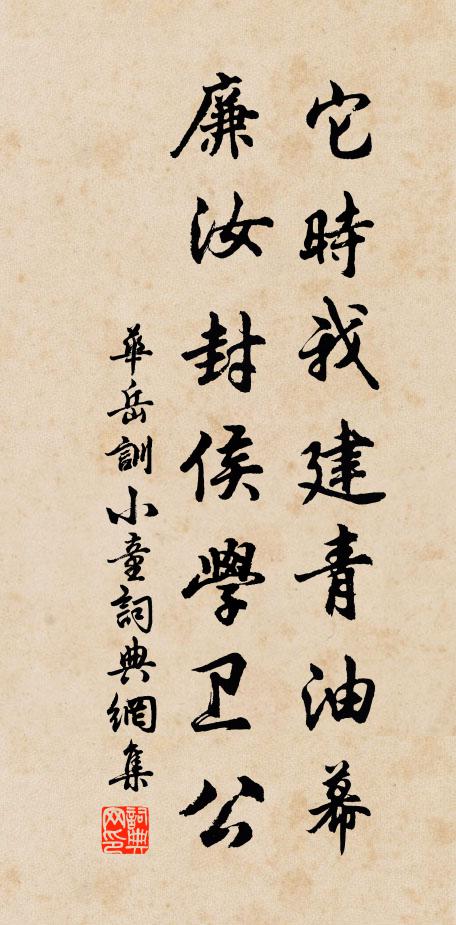 它時我建青油幕
廉汝封侯學卫公
華岳訓小童詞典網集
詞典網印